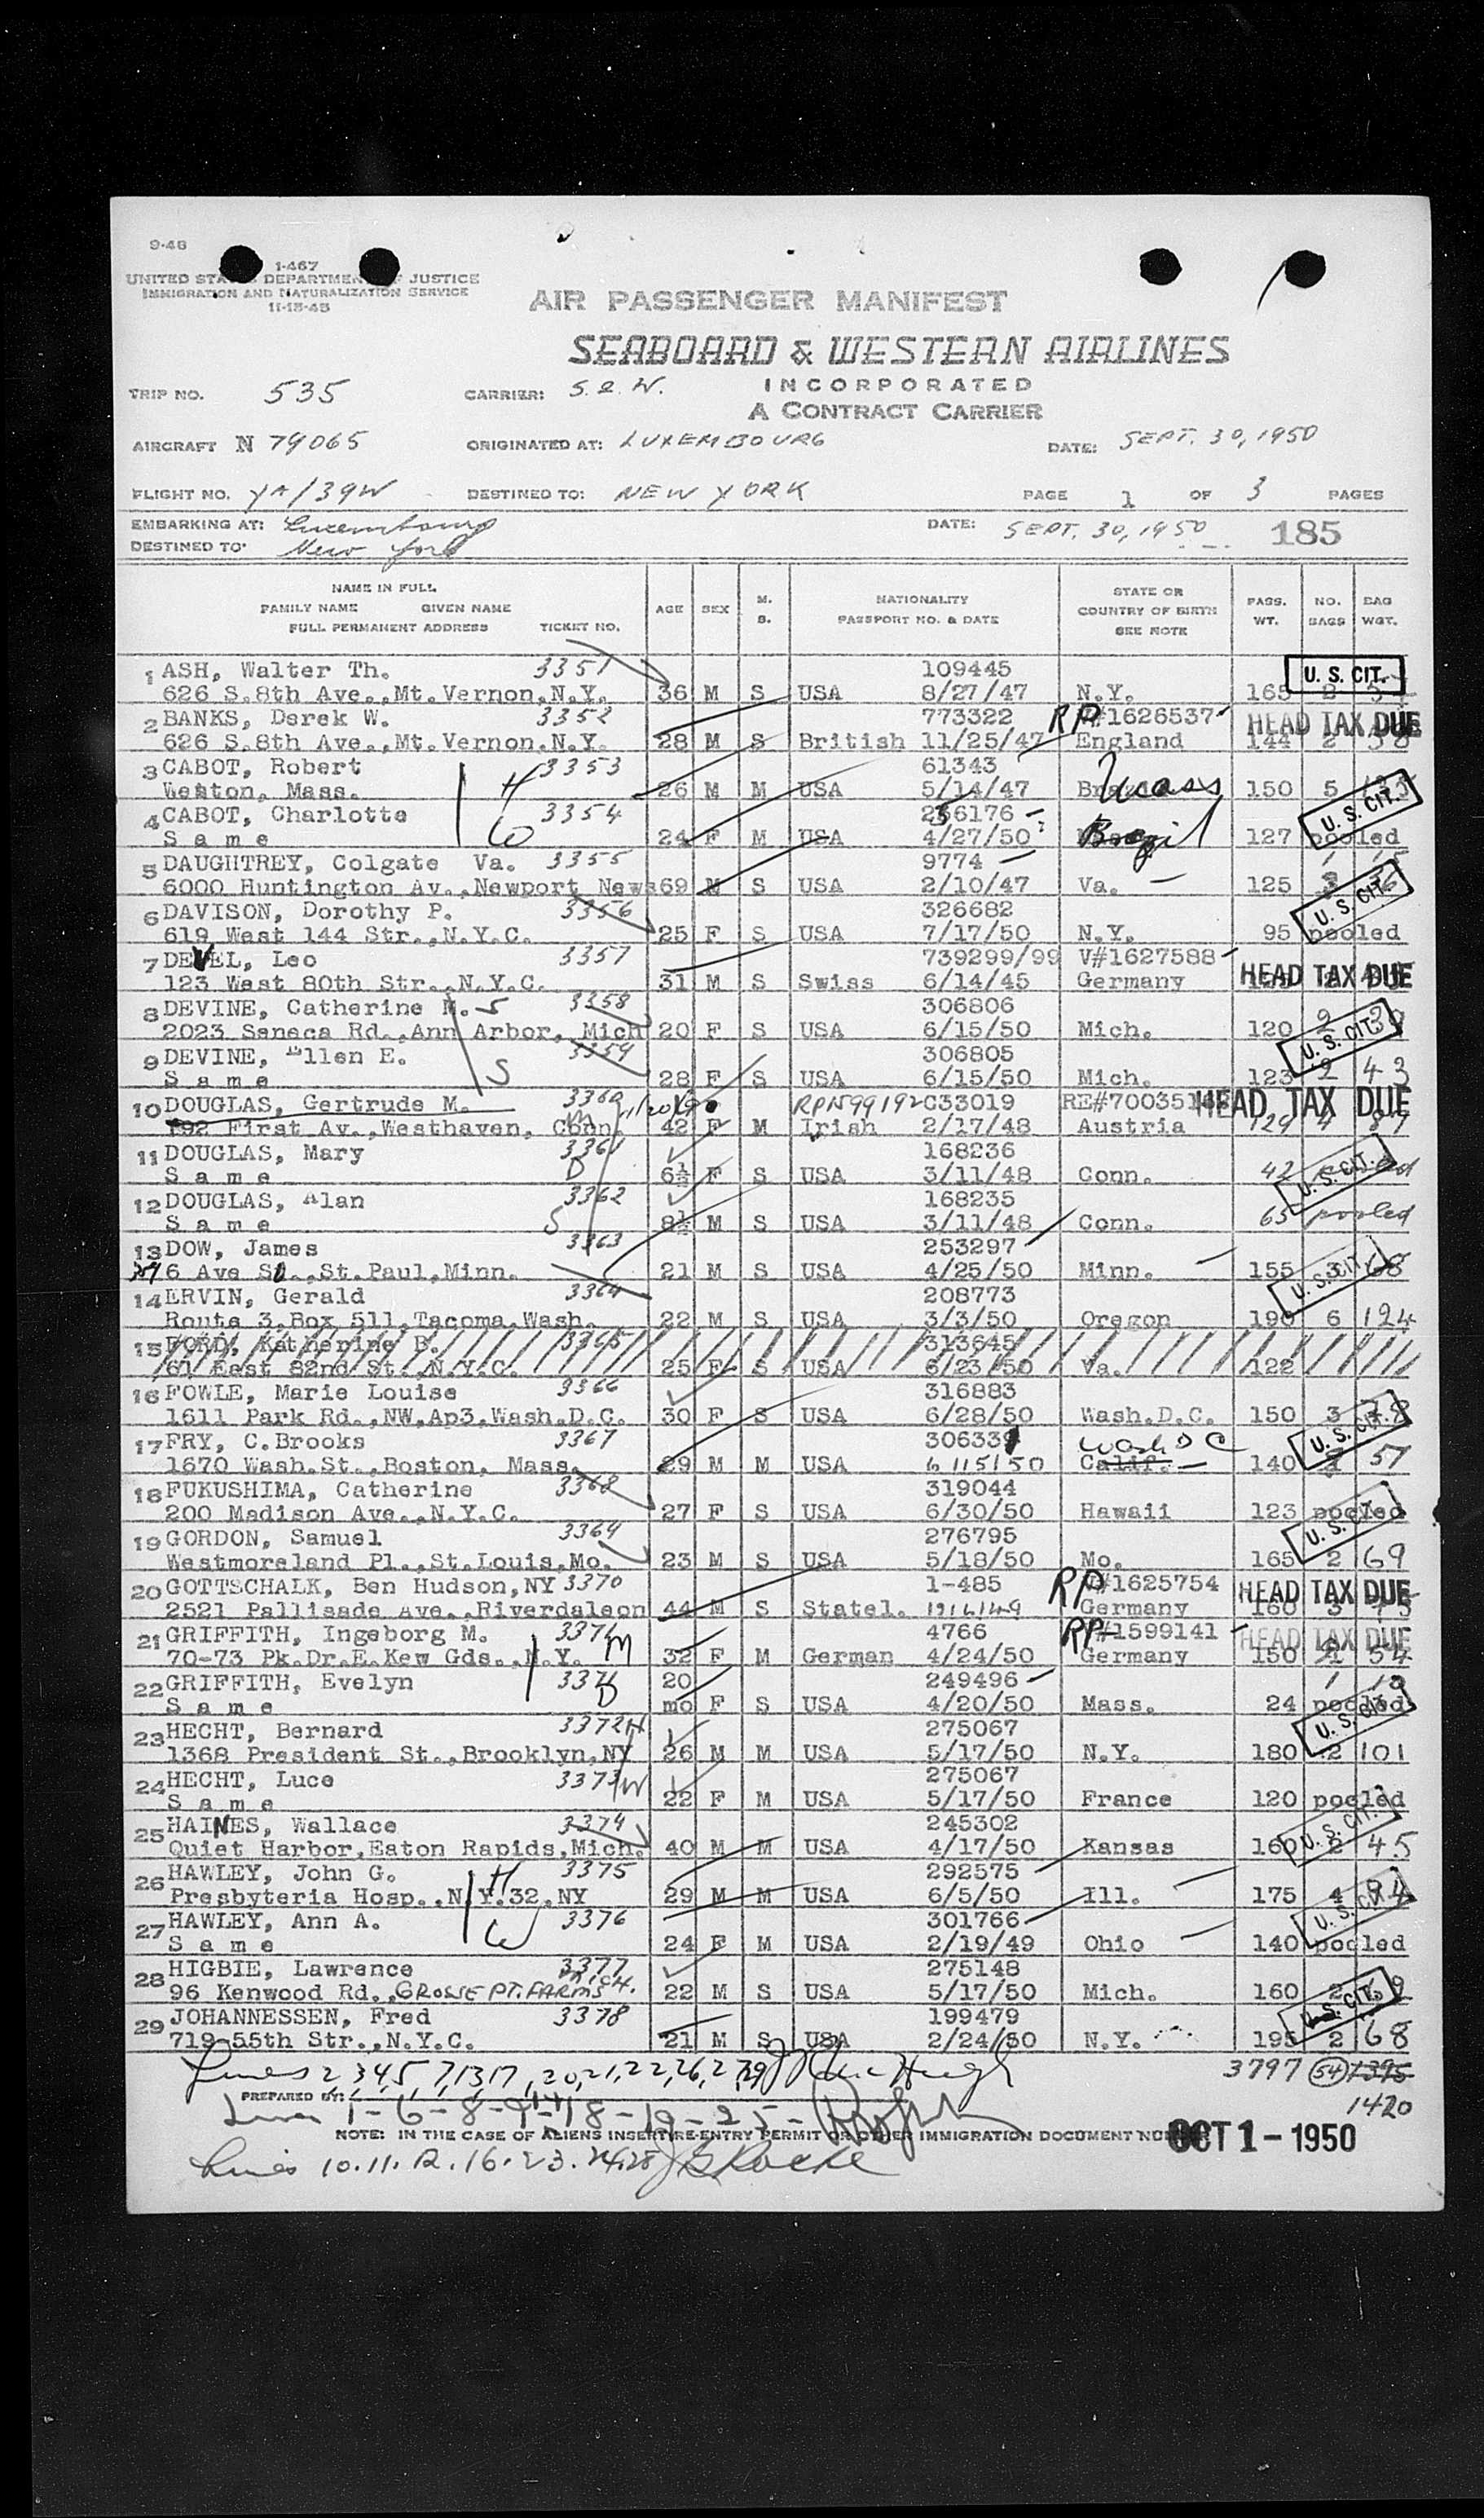 9-48
I-467
UNITED STATES DEPARTMENT OF JUSTICE
IMMIGRATION AND NATURALIZATION SERVICE
11-15-45
AIR PASSENGER MANIFEST
SEABOARD & WESTERN AIRLINES
INCORPORATED
A CONTRACT CARRIER
TRIP NO. 535 CARRIER: S. & W.
AIRCRAFT N 79065 ORIGINATED AT: LUXEMBOURG DATE: SEPT. 30, 1950
FLIGHT NO. YA/39W DESTINED TO: NEW YORK PAGE 1 OF 3 PAGES
EMBARKING AT: Luxembourg DATE: SEPT. 30, 1950 185
DESTINED TO: New York
NAME IN FULL
FAMILY NAME GIVEN NAME
FULL PERMANENT ADDRESS TICKET NO. AGE SEX M. S. NATIONALITY PASSPORT NO. & DATE STATE OR COUNTRY OF BIRTH SEE NOTE PASS. WT. NO. BAGS BAG WGT.
1 ASH, Walter Th. 3351 109445 U. S. CIT.
626 S.8th Ave.,Mt.Vernon,N.Y. 36 M S USA 8/27/47 N.Y. 165 2
2 BANKS, Derek W. 3352 773322 RP V#1626537 HEAD TAX DUE
626 S.8th Ave.,Mt.Vernon.N.Y. 28 M S British 11/25/47 England 144 2 38
3 CABOT, Robert H 3353 61343
Weston, Mass. 26 M M USA 5/14/47 Brazil Mass 150 5
4 CABOT, Charlotte W 3354 256176 U. S. CIT.
S a m e 24 F M USA 4/27/50 Brazil 127 pooled
5 DAUGHTREY, Colgate Va. 3355 9774
6000 Huntington Av.,Newport News 69 M S USA 2/10/47 Va. 125
6 DAVISON, Dorothy P. 3356 326682 U. S. CIT.
619 West 144 Str.,N.Y.C. 25 F S USA 7/17/50 N.Y. 95 pooled
7 DEVEL, Leo 3357 739299/99 V#1627588 HEAD TAX DUE
123 West 80th Str.,N.Y.C. 31 M S Swiss 6/14/45 Germany
8 DEVINE, Catherine M. S 3358 306806
2023 Seneca Rd.,Ann Arbor, Mich 20 F S USA 6/15/50 Mich. 120 2 39
9 DEVINE, Ellen E. 3359 306805 U. S. CIT.
S a m e S 28 F S USA 6/15/50 Mich. 123 2 43
10 DOUGLAS, Gertrude M. 3360 RP1599192 C33019 RE#7003514 HEAD TAX DUE
192 First Av.,Westhaven, Conn. M 42 F M Irish 2/17/48 Austria 129 4 87
11 DOUGLAS, Mary 3361 168236
S a m e D 6½ F S USA 3/11/48 Conn. 42 pooled
12 DOUGLAS, Alan 3362 168235 U. S. CIT.
S a m e S 8½ M S USA 3/11/48 Conn. 65 pooled
13 DOW, James 3363 253297
6 Ave St.,St.Paul,Minn. 21 M S USA 4/25/50 Minn. 155 3 68
14 ERVIN, Gerald 3364 208773 U. S. CIT.
Route 3,Box 511,Tacoma,Wash. 22 M S USA 3/3/50 Oregon 190 6 124
15 FORD, Katherine B. 3365 313645
61 East 82nd St.,N.Y.C. 25 F S USA 6/23/50 Va. 122
16 FOWLE, Marie Louise 3366 316883
1611 Park Rd.,NW.Ap3.Wash.D.C. 30 F S USA 6/28/50 Wash.D.C. 150 3 78
17 FRY, C.Brooks 3367 306339 Wash D C U. S. CIT.
1670 Wash.St.,Boston, Mass. 29 M M USA 6/15/50 Calif. 140 57
18 FUKUSHIMA, Catherine 3368 319044
200 Madison Ave.,N.Y.C. 27 F S USA 6/30/50 Hawaii 123 pooled
19 GORDON, Samuel 3369 276795 U. S. CIT.
Westmoreland Pl.,St.Louis,Mo. 23 M S USA 5/18/50 Mo. 165 2 69
20 GOTTSCHALK, Ben Hudson,NY 3370 1-485 RP V#1625754 HEAD TAX DUE
2521 Pallisade Ave.,Riverdaleon 44 M S Statel. Germany 160 3
21 GRIFFITH, Ingeborg M. 3371 4766 RP V#1599141 HEAD TAX DUE
70-73 Pk.Dr.E.Kew Gds.,N.Y. M 32 F M German 4/24/50 Germany 150 54
22 GRIFFITH, Evelyn D 20 249496 1 10
S a m e mo F S USA 4/20/50 Mass. 24 pooled
23 HECHT, Bernard 3372 H 275067 U. S. CIT.
1368 President St.,Brooklyn,NY 26 M M USA 5/17/50 N.Y. 180 2 101
24 HECHT, Luce 3373 W 275067
S a m e 22 F M USA 5/17/50 France 120 pooled
25 HAINES, Wallace 3374 245302 U. S. CIT.
Quiet Harbor,Eaton Rapids,Mich. 40 M M USA 4/17/50 Kansas 160 2 45
26 HAWLEY, John G. H 3375 292575
Presbyteria Hosp.,N.Y.32,NY 29 M M USA 6/5/50 Ill. 175 4 94
27 HAWLEY, Ann A. W 3376 301766 U. S. CIT.
S a m e 24 F M USA 2/19/49 Ohio 140 pooled
28 HIGBIE, Lawrence 3377 275148
96 Kenwood Rd., GROSSE PT. FARMS MICH. 22 M S USA 5/17/50 Mich. 160 2
29 JOHANNESSEN, Fred 3378 199479 U. S. CIT.
719-55th Str.,N.Y.C. 21 M S USA 2/24/50 N.Y. 195 2 68
Lines 2,3,4,5,7,13,17,20,21,22,26,27,29 3797 54 1395
PREPARED BY: 1420
Lines 1-6-8-9-14-18-19-25-
NOTE: IN THE CASE OF ALIENS INSERT RE-ENTRY PERMIT OR OTHER IMMIGRATION DOCUMENT NUMBER OCT 1-1950
Lines 10.11.12.16.23.24.28 J Roche